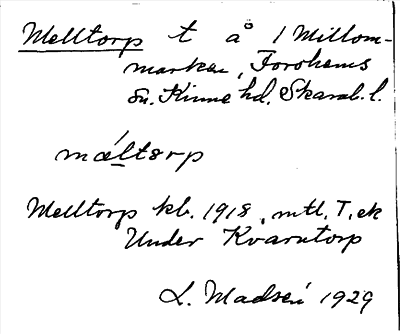 Melltorp t å 1 Mellom-
marken, Forshems
sn. Kinne hd. Skarab. l.
mæ̀ltorp
Melltorp kb. 1918, mtl. T. ek
Under Kvarntorp
L. Madsén 1929